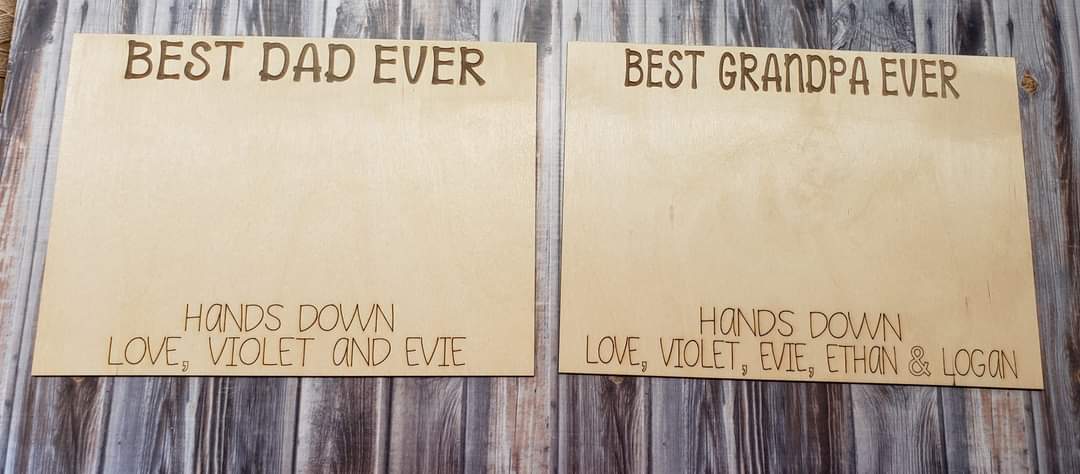 BEST DAD EVER
HANDS DOWN
LOVE, VIOLET AND EVIE
BEST GRANDPA EVER
HANDS DOWN
LOVE, VIOLET, EVIE, ETHAN & LOGAN